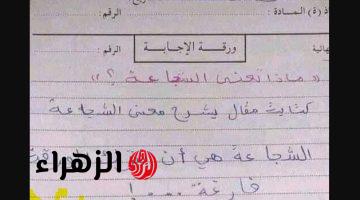 ذ(ة) المادة: الرقم:
ورقة الإجابة
هائية الرقم:
«ماذا تعني الشجاعة؟»
كتابة مقال يشرح معنى الشجاعة
الشجاعة هي أن
فارغة....!
الزهراء